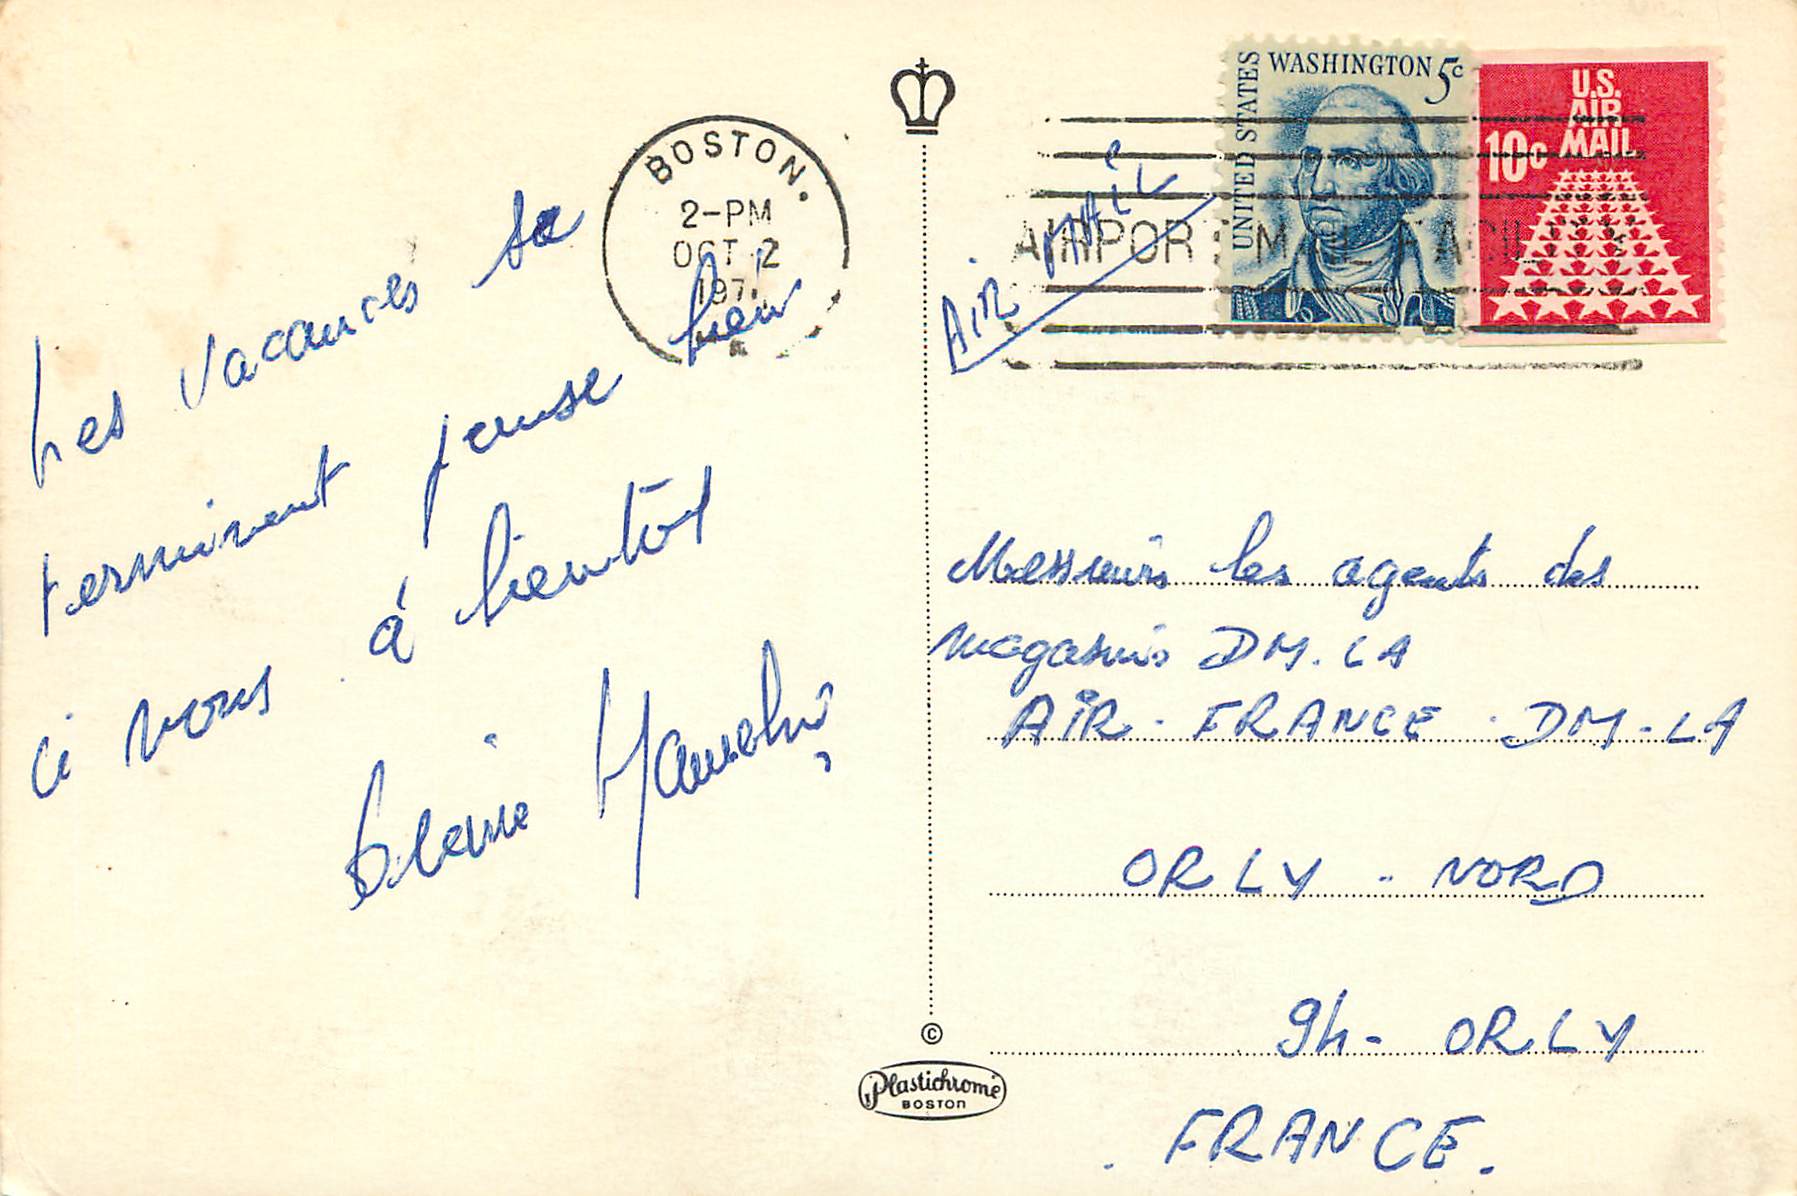 BOSTON.
2-PM
OCT 2
197
AIRPORT MAIL FACILITY
UNITED STATES
WASHINGTON 5c
U.S.
AIR
MAIL
10c
AIR MAIL
Les vacances se
terminent pense bien
à vous à bientôt
Messieurs les agents des
magasins DM. LA
AIR FRANCE . DM-LA
ORLY - NORD
94- ORLY
FRANCE.
©
Plastichrome
BOSTON